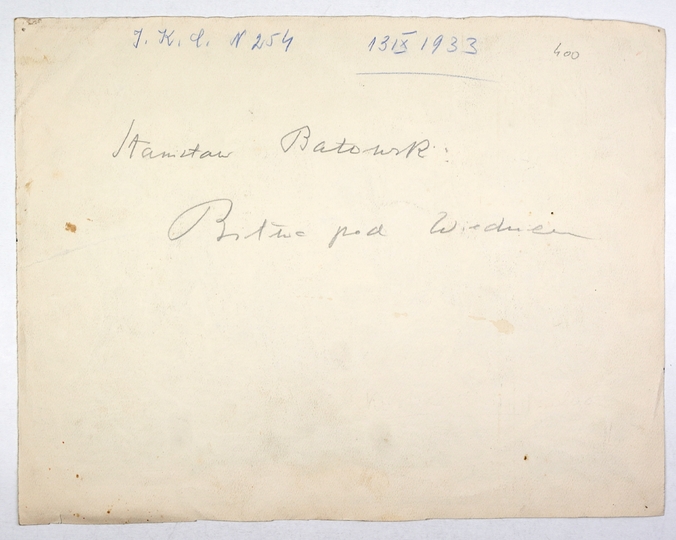 I. K. C. N 254 13 IX 1933 400
Stanisław Batowski:
Bitwa pod Wiedniem